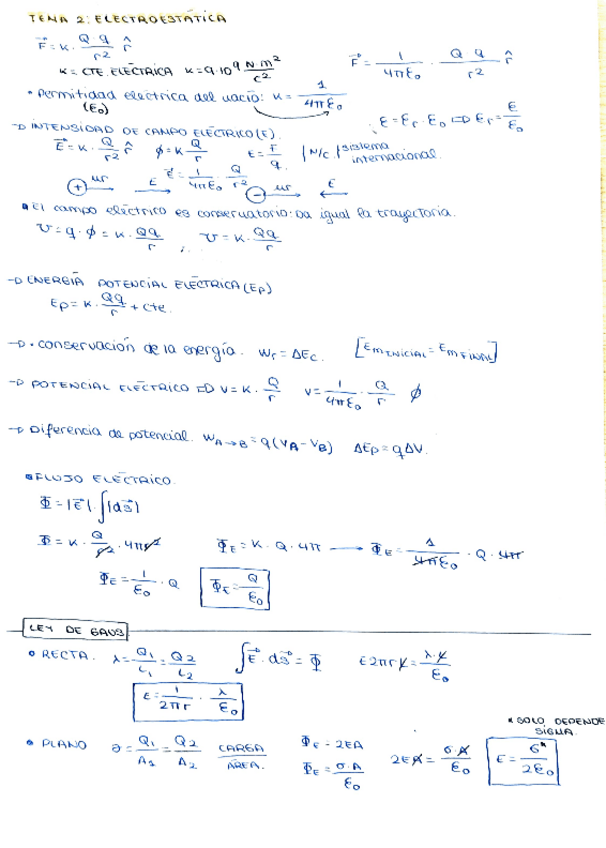 TEMA 2: ELECTROESTÁTICA
F = K · Q · q / r² r̂
K = CTE. ELÉCTRICA K = 9·10⁹ N·m²/C² F = 1/4πε₀ · Q q / r² r̂
• Permitidad eléctrica del vacío: K = 1/4πε₀
(ε₀) ε = εr · ε₀ ⇒ εr = ε/ε₀
→ INTENSIDAD DE CAMPO ELÉCTRICO (E).
E = K · Q/r² r̂ ϕ = K Q/r E = F/q |N/C| sistema internacional.
E = 1/4πε₀ · Q/r²
+ ur E - ur E
• El campo eléctrico es conservatorio: Da igual la trayectoria.
U = q · ϕ = K · Qq/r ; U = K · Qq/r
→ ENERGÍA POTENCIAL ELÉCTRICA (Ep)
Ep = K · Qq/r + cte.
→ · conservación de la energía. Wr = ΔEc. [Em INICIAL = Em FINAL]
→ POTENCIAL ELÉCTRICO ⇒ V = K · Q/r V = 1/4πε₀ · Q/r ϕ
→ Diferencia de potencial. W A→B = q(VA - VB) ΔEp = qΔV.
• FLUJO ELÉCTRICO.
Φ = |E| · ∫|ds|
Φ = K · Q/r² · 4πr² ΦE = K · Q · 4π → ΦE = 1/4πε₀ · Q · 4π
ΦE = 1/ε₀ · Q ΦE = Q/ε₀
LEY DE GAUS
• RECTA. λ = Q1/L1 = Q2/L2 ∫E · ds = Φ E2πrL = λ·L/ε₀
E = 1/2πr · λ/ε₀
* SOLO DEPENDE SIGMA.
• PLANO ∂ = Q1/A1 = Q2/A2 CARGA/ÁREA. ΦE = 2EA 2EA = σ·A/ε₀ E = σ*/2ε₀
ΦE = σ·A/ε₀